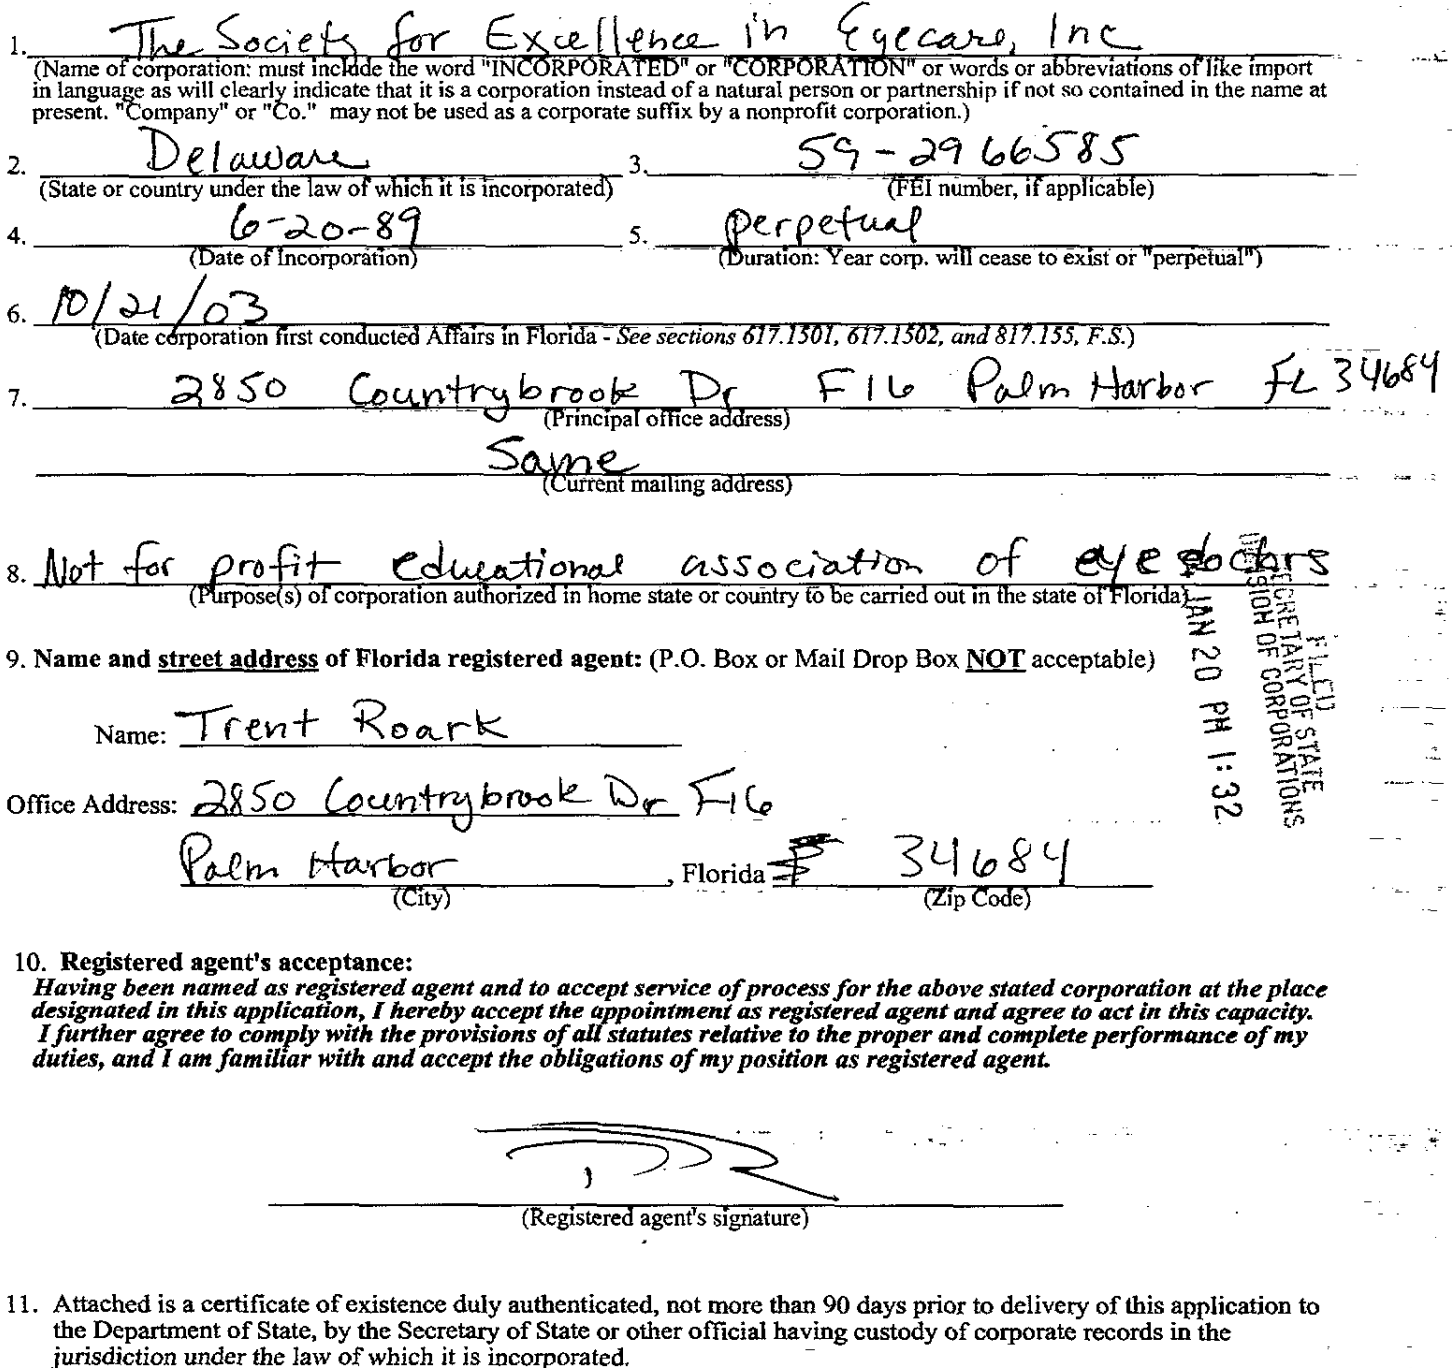 1. The Society for Excellence in Eyecare, Inc
(Name of corporation: must include the word "INCORPORATED" or "CORPORATION" or words or abbreviations of like import
in language as will clearly indicate that it is a corporation instead of a natural person or partnership if not so contained in the name at
present. "Company" or "Co." may not be used as a corporate suffix by a nonprofit corporation.)
2. Delaware 3. 59-2966585
(State or country under the law of which it is incorporated) (FEI number, if applicable)
4. 6-20-89 5. perpetual
(Date of Incorporation) (Duration: Year corp. will cease to exist or "perpetual")
6. 10/21/03
(Date corporation first conducted Affairs in Florida - See sections 617.1501, 617.1502, and 817.155, F.S.)
7. 2850 Countrybrook Dr F16 Palm Harbor FL 34684
(Principal office address)
Same
(Current mailing address)
8. Not for profit educational association of eye doctors
(Purpose(s) of corporation authorized in home state or country to be carried out in the state of Florida)
FILED
SECRETARY OF STATE
DIVISION OF CORPORATIONS
JAN 20 PM 1:32
9. Name and street address of Florida registered agent: (P.O. Box or Mail Drop Box NOT acceptable)
Name: Trent Roark
Office Address: 2850 Countrybrook Dr F16
Palm Harbor, Florida 34684
(City) (Zip Code)
10. Registered agent's acceptance:
Having been named as registered agent and to accept service of process for the above stated corporation at the place
designated in this application, I hereby accept the appointment as registered agent and agree to act in this capacity.
I further agree to comply with the provisions of all statutes relative to the proper and complete performance of my
duties, and I am familiar with and accept the obligations of my position as registered agent.
(Registered agent's signature)
11. Attached is a certificate of existence duly authenticated, not more than 90 days prior to delivery of this application to
the Department of State, by the Secretary of State or other official having custody of corporate records in the
jurisdiction under the law of which it is incorporated.